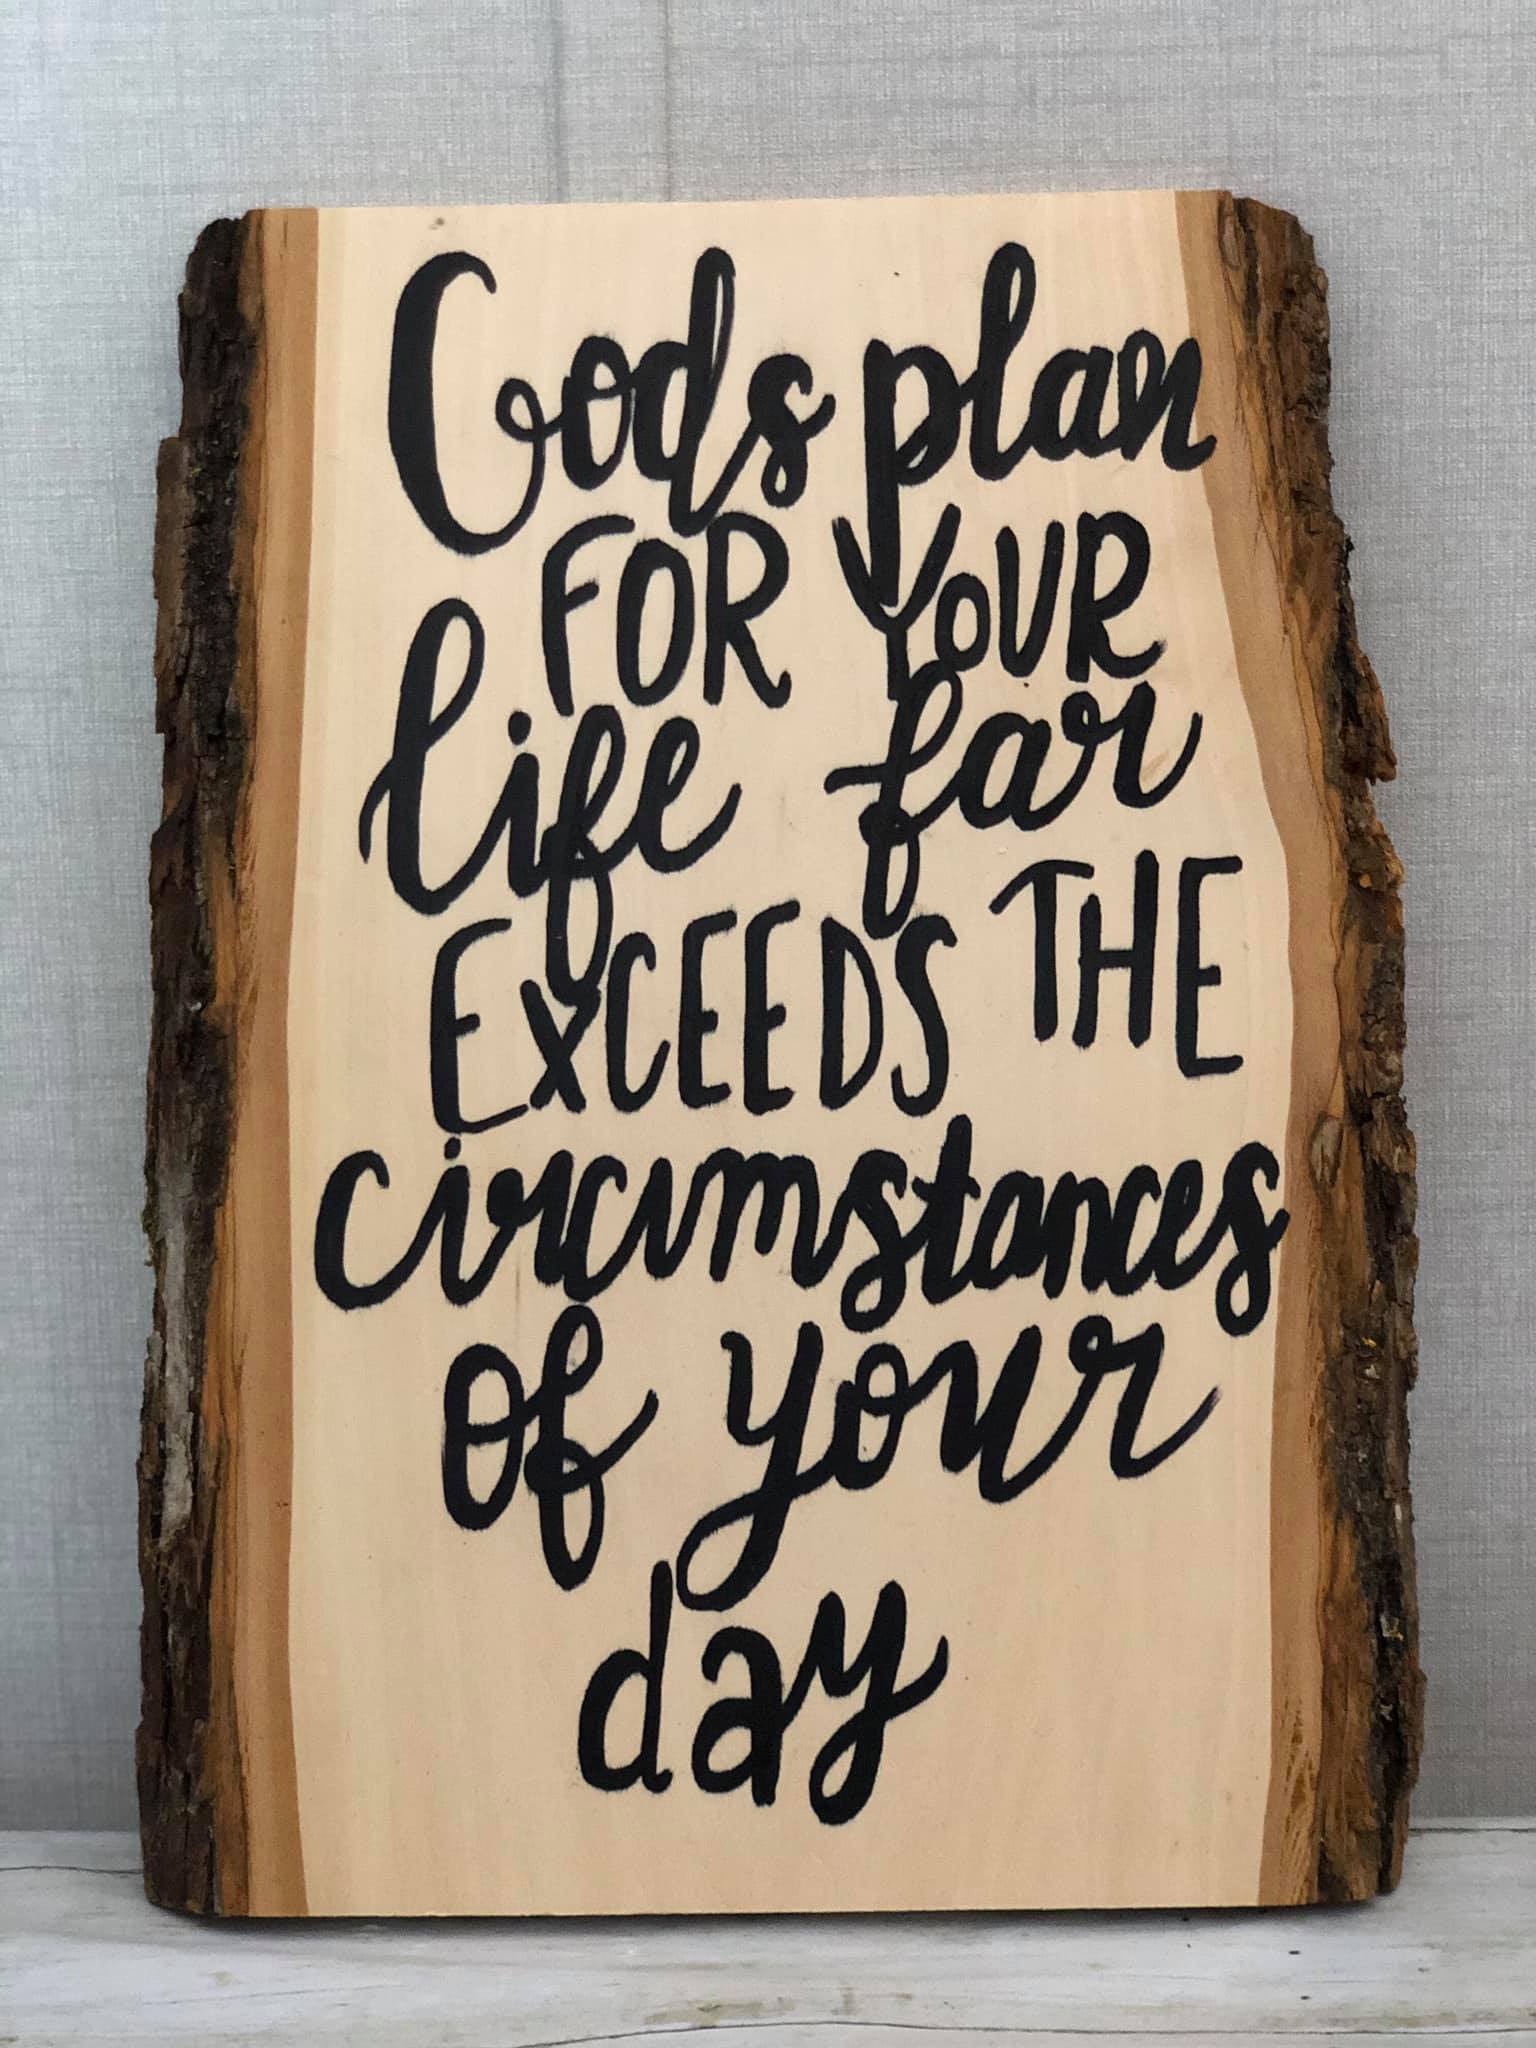 Gods plan
FOR YOUR
life far
EXCEEDS THE
circumstances
of your
day